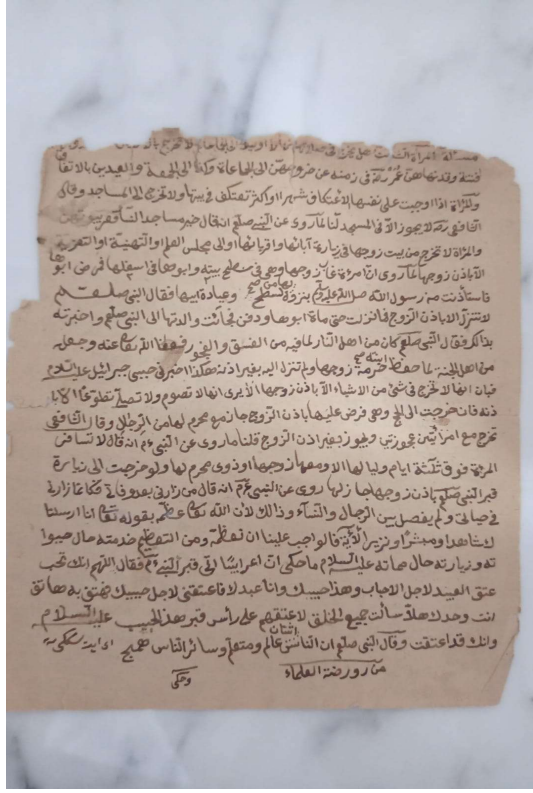 مسئلة المرأة
فتنة وقد نهاهن عمر رضه في زمنه عن خروجهن الى الجماعاة وكذا الى الجمعة والعيدين بالاتفاق
والمرأة اذا اوجبت على نفسها الاعتكاف شهرا او اكثر تعتكف في بيتها ولا تخرج الى المساجد وقال
الشافعي رحه لا يجوز الا في المسجد لنا لما روى عن النبي صلعم انه قال خير مساجد النساء قعر بيوتهن
والمراة لا تخرج من بيت زوجها في زيارة آبائها واقربائها او الى مجلس العلم او التهنية او التعزية
الا باذن زوجها لما روى ان امرأة غاب زوجها وهى في سطح بيته وابوها في اسفلها فمرض ابوها
فاستأذنت من رسول الله صلى الله عليه وسلم بنزولها من السطح وعيادة ابيها فقال النبي صلعم
لا تنزل الا باذن الزوج فما نزلت حتى مات ابوها ودفن فجائت والدتها الى النبي صلعم واخبرته
بذلك فقال النبي صلعم كان من اهل النار لما فيه من الفسق والفجور فعفا الله تعا عنه وجعله
من اهل الجنة لما حفظ ابنته حرمة زوجها ولم تنزل اليه بغير اذنه هكذا اخبرني حبيبي جبرائيل عليه السلام
فبان انها لا تخرج في شئ من الاشياء الا باذن زوجها الا يرى انها لا تصوم ولا تصلى تطوعا الا با
ذنه فان خرجت الى الحج وهى فرض عليها باذن الزوج جاز مع محرم لها من الرجال وقال الشافعي
تخرج مع امرأتين عجوزتين ويجوز بغير اذن الزوج قلنا ما روى عن النبي عم انه قال لا تسافر
المرأة فوق ثلثة ايام ولياليها الا ومعها زوجها او ذوى محرم لها ولو خرجت الى زيارة
قبر النبي صلعم باذن زوجها جاز لها روى عن النبي عم انه قال من زارني بعد وفاتي فكانما زارني
في حياتي ولم يفصل بين الرجال والنساء وذالك لان الله تعا عظمه بقوله تعا انا ارسلنا
ك شاهدا ومبشرا ونذيرا الآية فالواجب علينا ان نعظمه ومن التعظيم خدمته حال حيوا
ته وزيارته حال مماته عليه السلام ما حكى ان اعرابيا اتى قبر النبي عم فقال اللهم انك تحب
عتق العبيد لاجل الاحباب وهذا حبيبك وانا عبدك فاعتقني لاجل حبيبك فهتف به هاتف
انت وحدك هلا سألت جميع الخلق لاعتقهم على رأس قبر هذا الحبيب عليه السلام
وانك قد اعتقت وقال النبي صلعم ان الناس اثنان عالم ومتعلم وسائر الناس همج
من روضة العلماء
وحكى